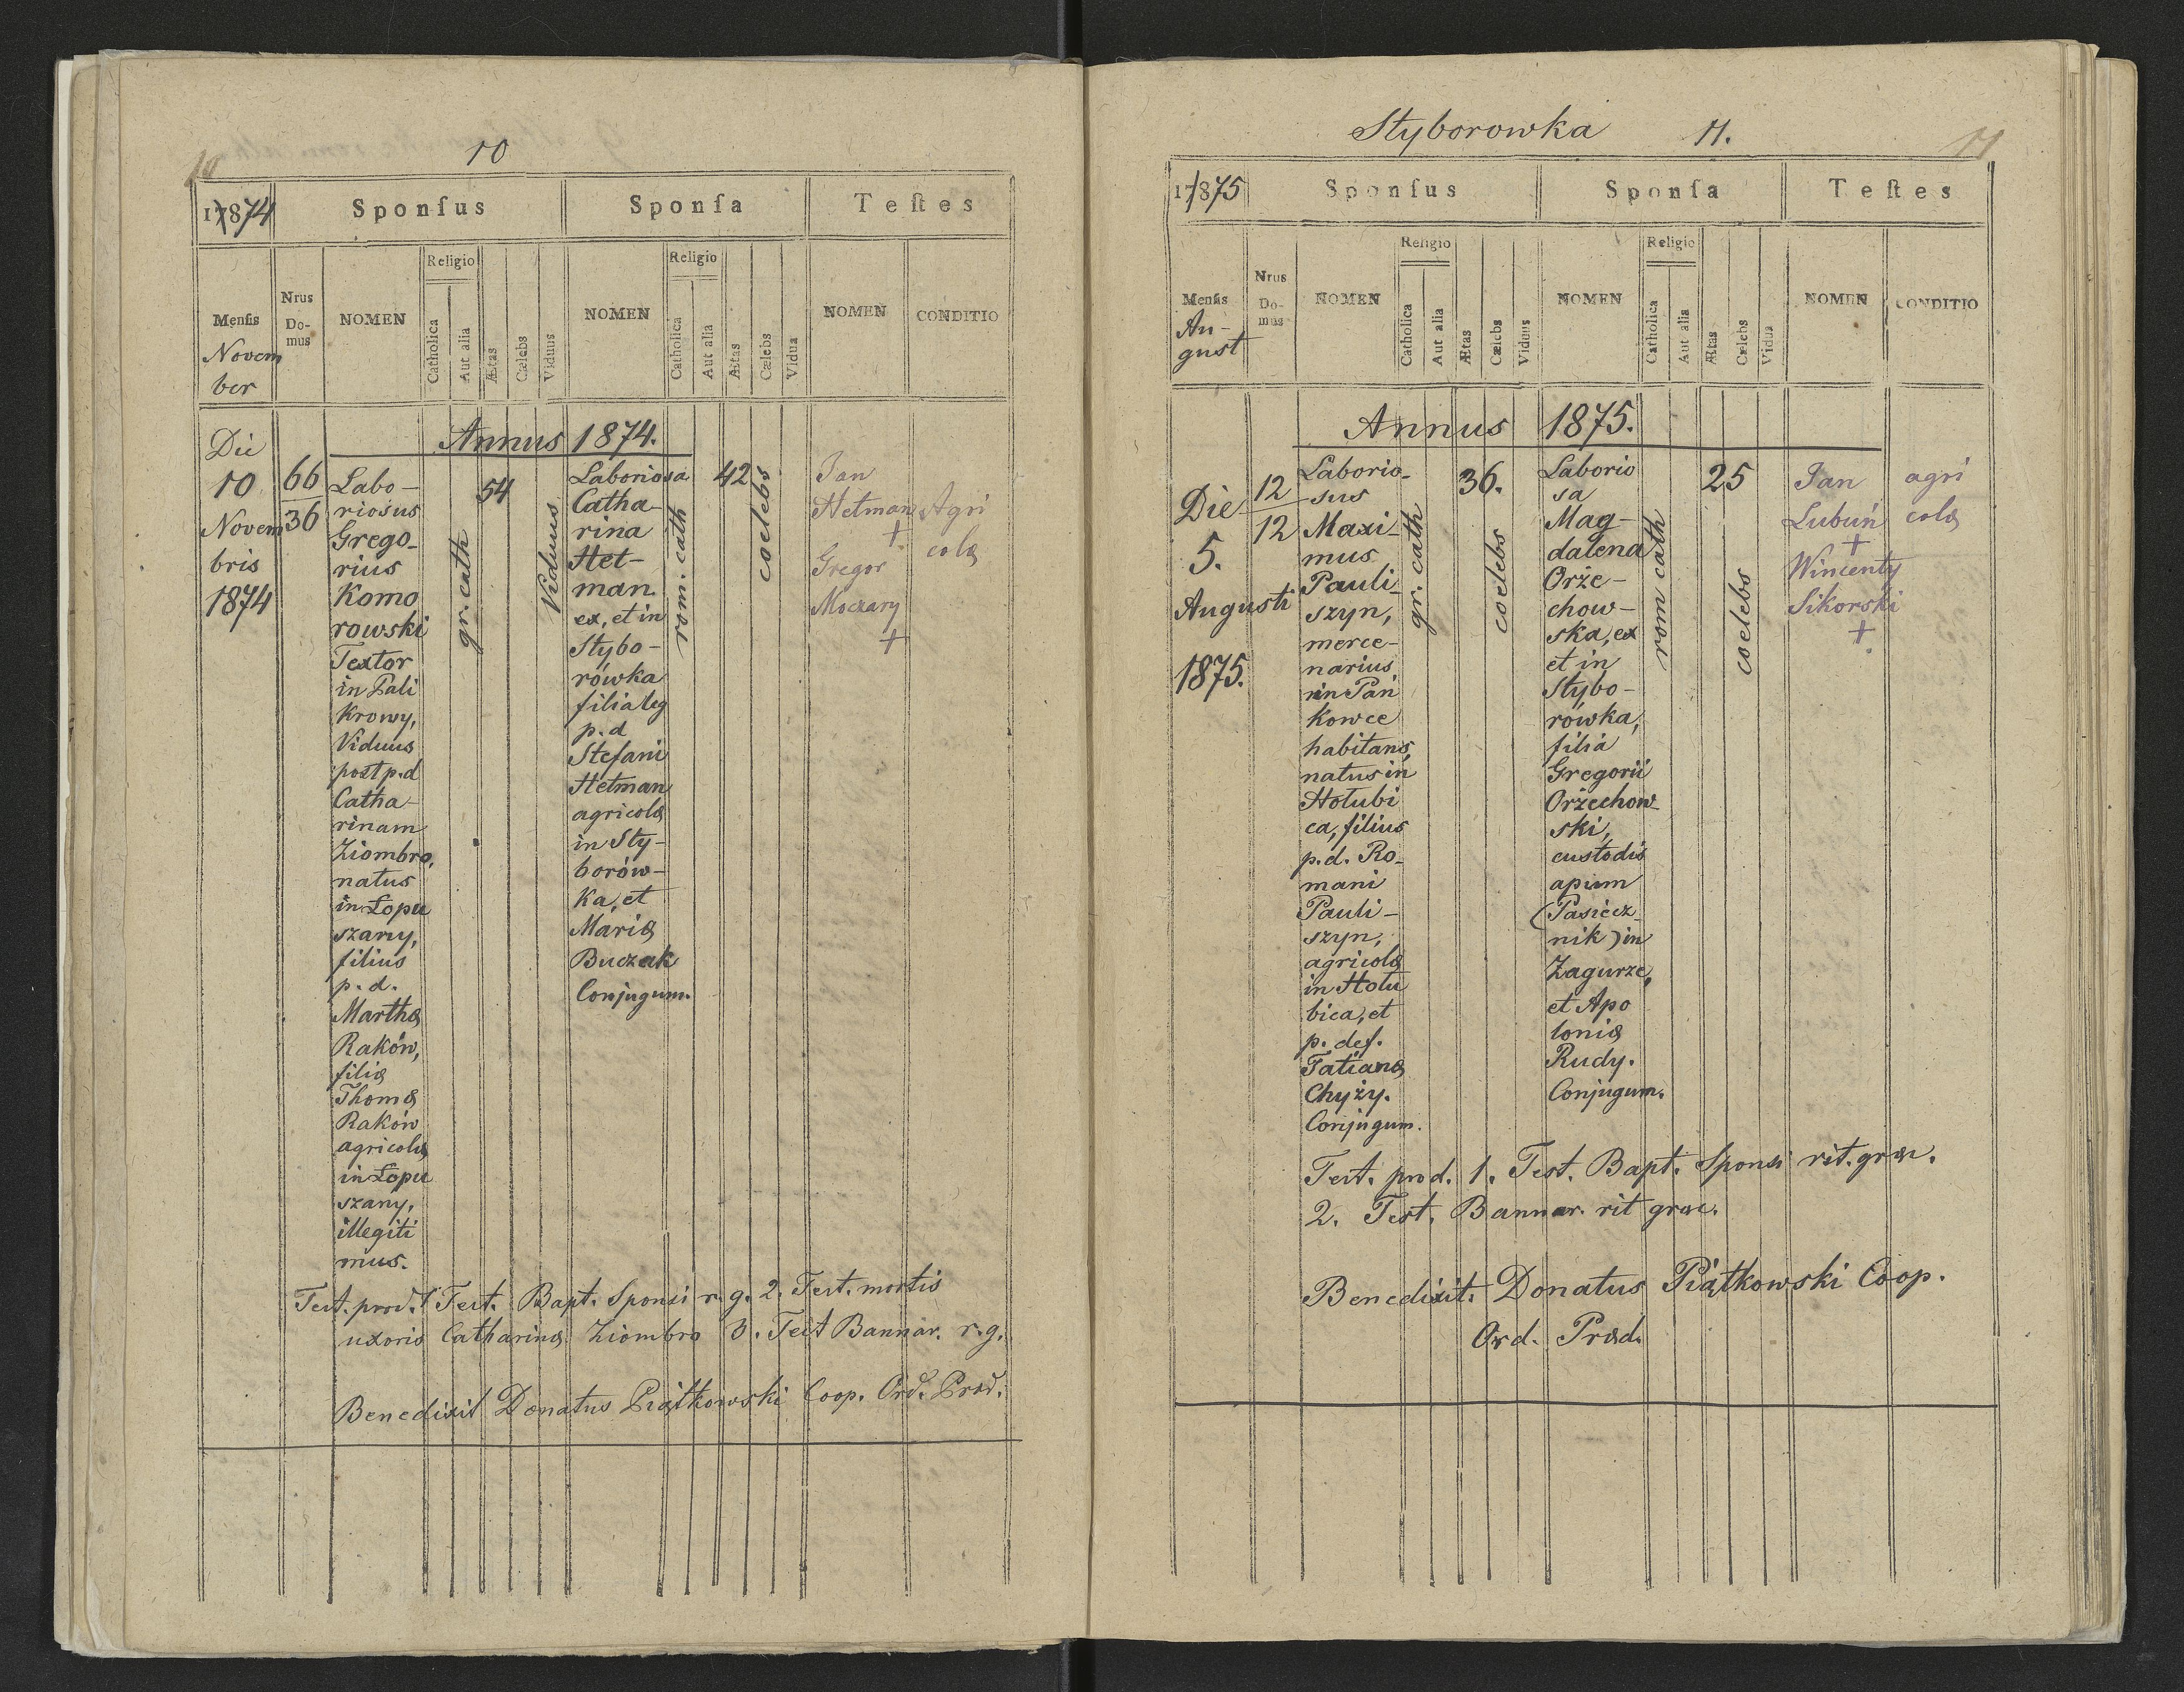 10
10
17874
Sponſus
Sponſa
Teſtes
Menſis
Novem
ber
Nrus
Do-
mus
NOMEN
Religio
Catholica
Aut alia
Ætas
Cælebs
Viduus
NOMEN
Religio
Catholica
Aut alia
Ætas
Cælebs
Vidua
NOMEN
CONDITIO
Annus 1874.
Die
10
Novem
bris
1874
66
36
Labo-
riosus
Grego-
rius
Komo
rowski
Textor
in Pali
krowy,
Viduus
post p.d
Catha-
rinam
Ziombro,
natus
in Łopu
szany,
filius
p. d.
Marthæ
Raków,
filiæ
Thomæ
Raków
agricolæ
in Łopu
szany,
illegiti
mus.
gr. cath
54
Viduus
Laboriosa
Catha-
rina
Het-
man.
ex, et in
Stybo-
rówka
filia leg
p. d
Stefani
Hetman
agricolæ
in Sty-
borów-
ka, et
Mariæ
Buczak
Conjugum.
rom. cath
42
coelebs
Jan
Hetman
+
Gregor
Moczary
+
Agri
colæ
Test. prod. 1 Test. Bapt. Sponsi r. g. 2. Test. mortis
uxoris Catharinæ Ziombro 3. Test Bannar. r. g.
Benedixit Donatus Piątkowski Coop. Ord. Præd.
Styborowka 11.
11
17875
Sponſus
Sponſa
Teſtes
Menſis
Au-
gust
Nrus
Do-
mus
NOMEN
Religio
Catholica
Aut alia
Ætas
Cælebs
Viduus
NOMEN
Religio
Catholica
Aut alia
Ætas
Cælebs
Vidua
NOMEN
CONDITIO
Annus 1875.
Die
5.
Augusti
1875.
12
12
Laborio-
sus
Maxi-
mus
Pauli-
szyn,
merce-
narius
in Pań
kowce
habitans,
natus in
Hołubi
ca, filius
p. d. Ro-
mani
Pauli-
szyn,
agricolæ
in Hołu
bica, et
p. def.
Tatianæ
Chyży.
Conjugum.
gr. cath
36.
coelebs
Laborio
sa
Mag-
dalena
Orze-
chow-
ska, ex
et in
Stybo-
rówka,
filia
Gregorii
Orzechow-
ski,
custodis
apium
(Pasiecz-
nik) in
Zagurze,
et Apo
loniæ
Rudy.
Conjugum.
rom cath
25
coelebs
Jan
Lubuń
+
Wincenty
Sikorski
+
agri
colæ
Test. prod. 1. Test. Bapt. Sponsi rit. græc.
2. Test. Bannar. rit græc.
Benedixit. Donatus Piątkowski Coop.
Ord. Præd.